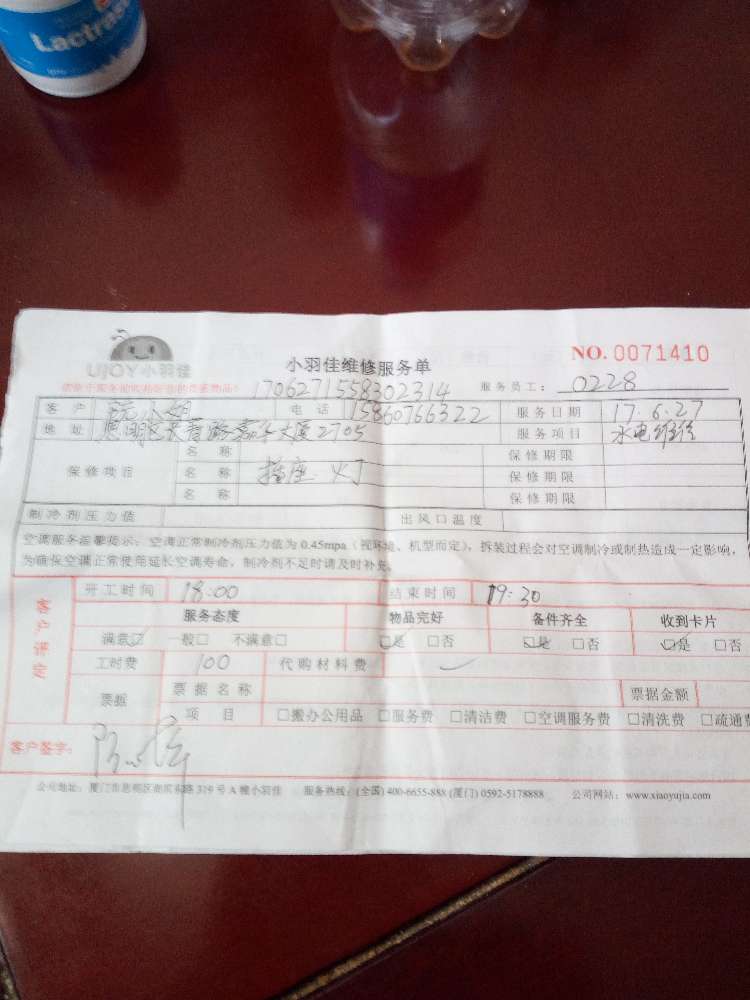 Lactras
UJOY小羽佳
小羽佳维修服务单
NO. 0071410
1706271558302314
服务员工: 0228
客户 小姐 电话 15860766322 服务日期 17.6.27
地址 思明区长青路嘉华大厦2705 服务项目 水电维修
保修项目
名称 保修期限
名称 插座 灯 保修期限
名称 保修期限
制冷剂压力值 出风口温度
空调服务温馨提示:空调正常制冷剂压力值为0.45mpa(视环境、机型而定),拆装过程会对空调制冷或制热造成一定影响,
为确保空调正常使用延长空调寿命,制冷剂不足时请及时补充。
客户评定
开工时间 18:00 结束时间 19:30
服务态度 物品完好 备件齐全 收到卡片
满意☑ 一般□ 不满意□ ☑是 □否 ☑是 □否 ☑是 □否
工时费 100 代购材料费
票据 票据名称 票据金额
项目 □搬办公用品 □服务费 □清洁费 □空调服务费 □清洗费 □疏通费
客户签字:
公司地址:厦门市思明区湖滨东路319号A幢小羽佳 服务热线:(全国)400-6655-888 (厦门)0592-5178888 公司网站:www.xiaoyujia.com